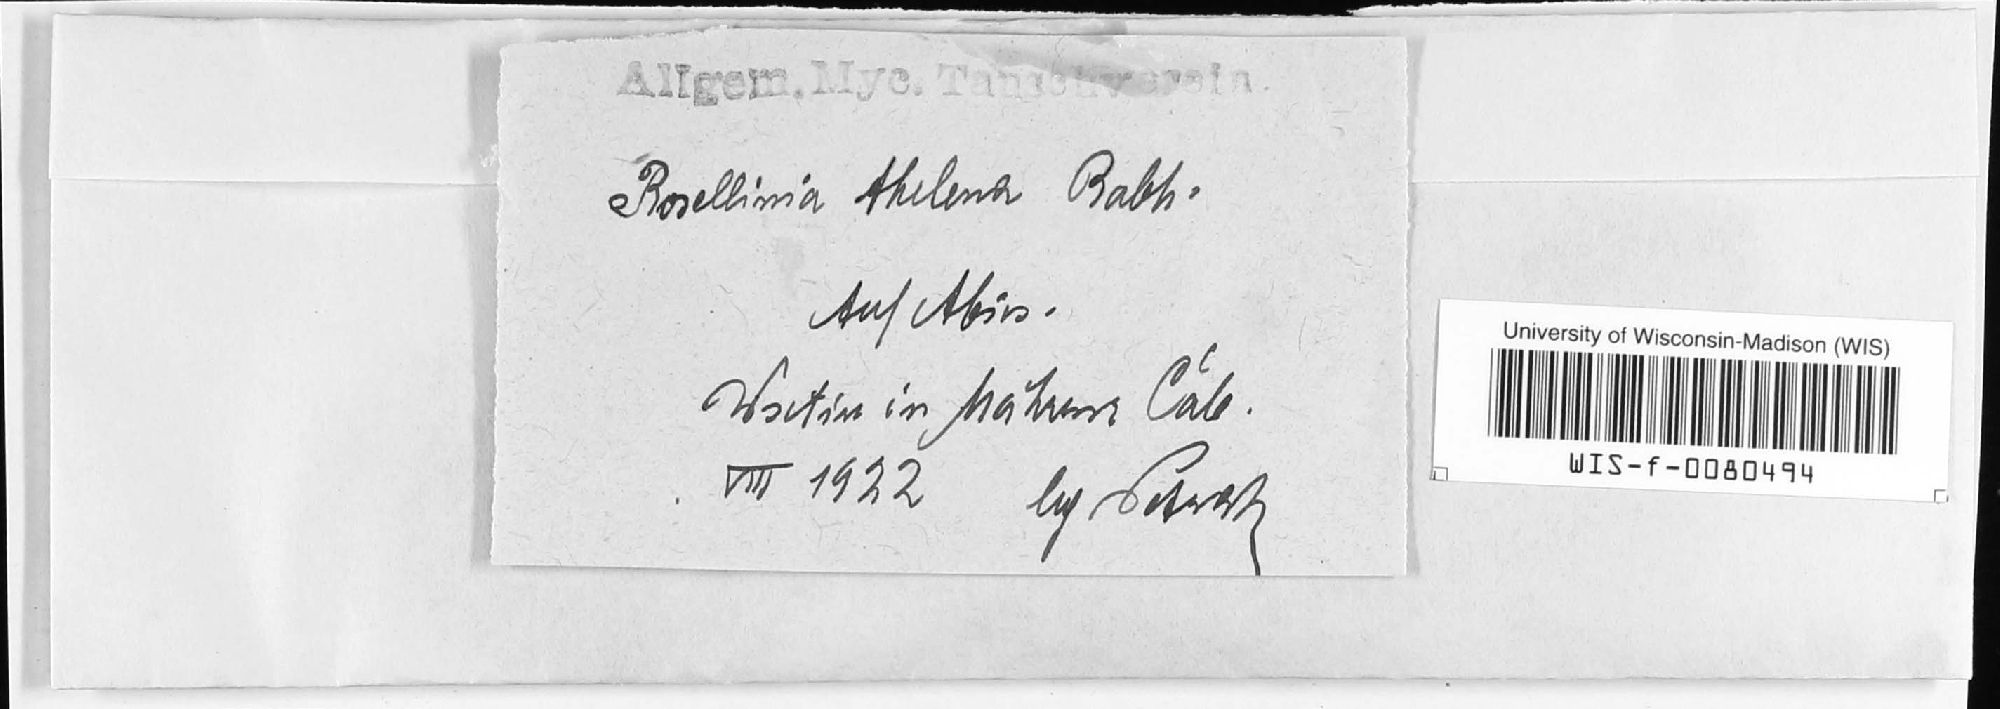 Allgem. Myc. Tauschverein.
Rosellinia thelena Rabh.
Auf Abies.
Wsetin in Mähren
VIII 1922 leg
University of Wisconsin-Madison (WIS)
WIS-f-0080494